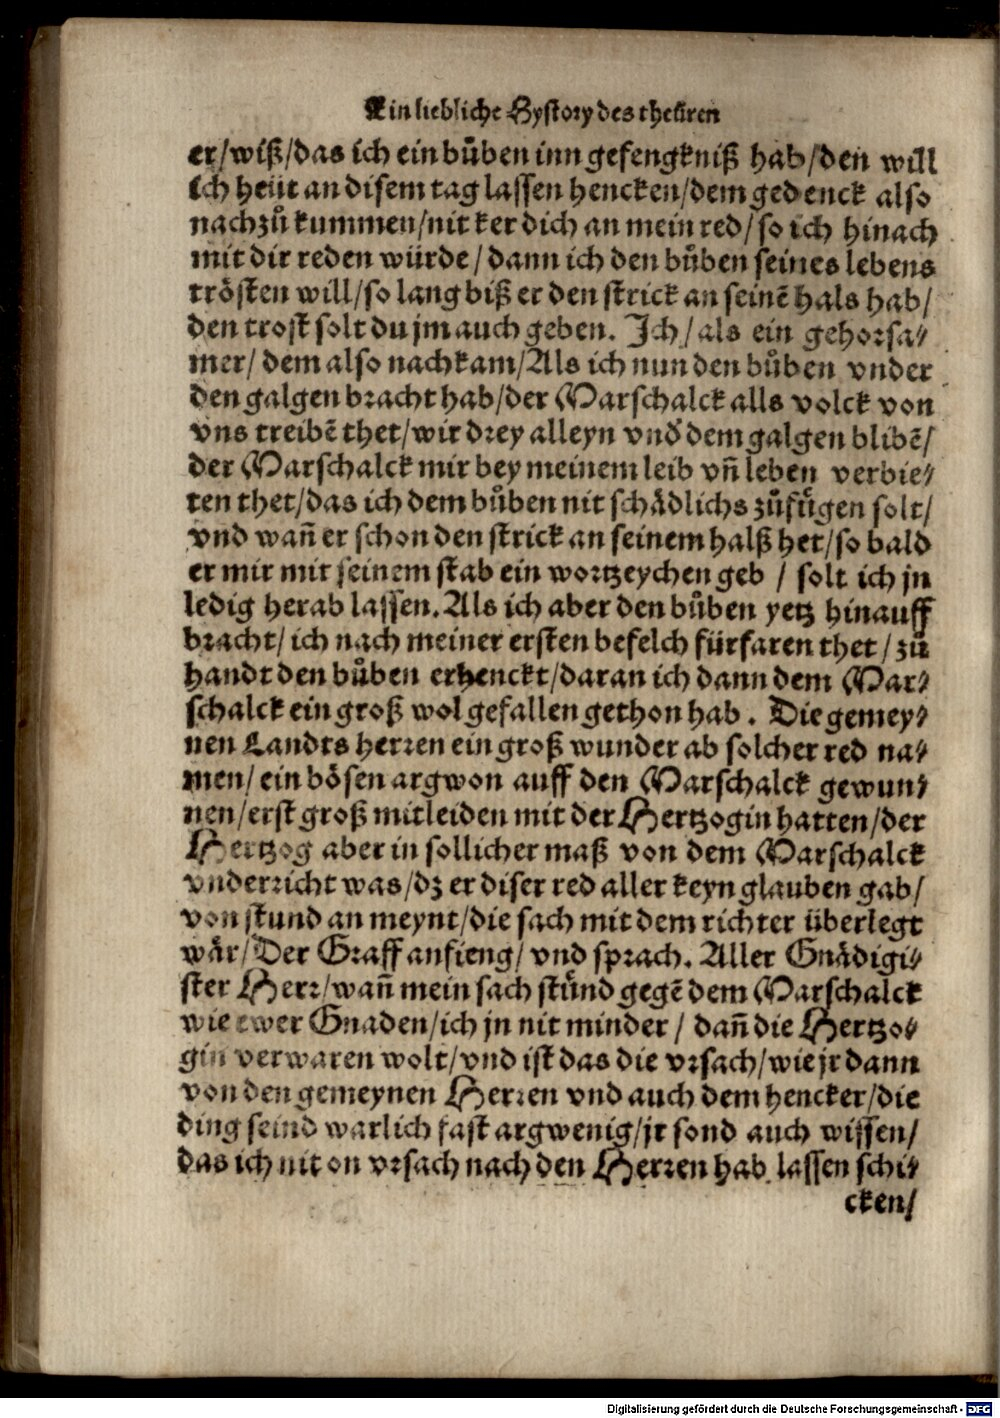 Ein liebliche Hystory des theuͤren
er/wiß/das ich ein buͦben inn gefengkniß hab/den will
ich heüt an disem tag lassen hencken/dem gedenck also
nachzuͦ kummen/nit ker dich an mein red/so ich hinach
mit dir reden würde/dann ich den buͦben seines lebens
troͤsten will/so lang biß er den strick an seinē hals hab/
den trost solt du jm auch geben. Ich/als ein gehorsa⸗
mer/dem also nachkam/Als ich nun den buͦben vnder
den galgen bracht hab/der Marschalck alls volck von
vns treibē thet/wir drey alleyn vnd̕ dem galgen blibē/
der Marschalck mir bey meinem leib vn̄ leben verbie⸗
ten thet/das ich dem buͦben nit schaͤdlichs zuͦfuͤgen solt/
vnd wan̄ er schon den strick an seinem halß het/so bald
er mir mit seinem stab ein wortzeychen geb / solt ich jn
ledig herab lassen. Als ich aber den buͦben yetz hinauff
bracht/ich nach meiner ersten befelch fürfaren thet/zuͦ
handt den buͦben erhenckt/daran ich dann dem Mar⸗
schalck ein groß wolgefallen gethon hab. Die gemey⸗
nen Landts herren ein groß wunder ab solcher red na⸗
men/ein boͤsen argwon auff den Marschalck gewun⸗
nen/erst groß mitleiden mit der Hertzogin hatten/der
Hertzog aber in sollicher maß von dem Marschalck
vnderricht was/dz er diser red aller keyn glauben gab/
von stund an meynt/die sach mit dem richter überlegt
waͤr/Der Graff anfieng/vnd sprach. Aller Gnaͤdigi⸗
ster Herr/wan̄ mein sach stuͤnd gegē dem Marschalck
wie ewer Gnaden/ich jn nit minder / dan̄ die Hertzo⸗
gin verwaren wolt/vnd ist das die vrsach/wie jr dann
von den gemeynen Herren vnd auch dem hencker/die
ding seind warlich fast argwenig/jr sond auch wissen/
das ich nit on vrsach nach den Herren hab lassen schi⸗
cken/
Digitalisierung gefördert durch die Deutsche Forschungsgemeinschaft - DFG